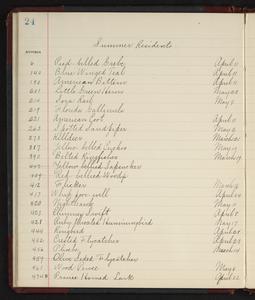 24
Summer Residents
6 Pied-billed Grebe April 11
140 Blue Winged Teal April 11
190 American Bittern April
201 Little Green Heron May
214 Sora Rail May 7
219 Florida Gallinule
221 American Coot April
263 Spotted Sandpiper May 2
273 Killdeer March
387 Yellow-billed Cuckoo May
390 Belted Kingfisher March 19
402 Yellow-bellied Sapsucker
409 Red-bellied Woodp
412 Flicker March
417 Whip poor will April
420 Nighthawk May
423 Chimney Swift April
428 Ruby throated Hummingbird May 17
444 Kingbird April 28
452 Crested Flycatcher April 29
456 Phoebe March
459 Olive Sided Flycatcher
461 Wood Pewee May
474b Prairie Horned Lark April